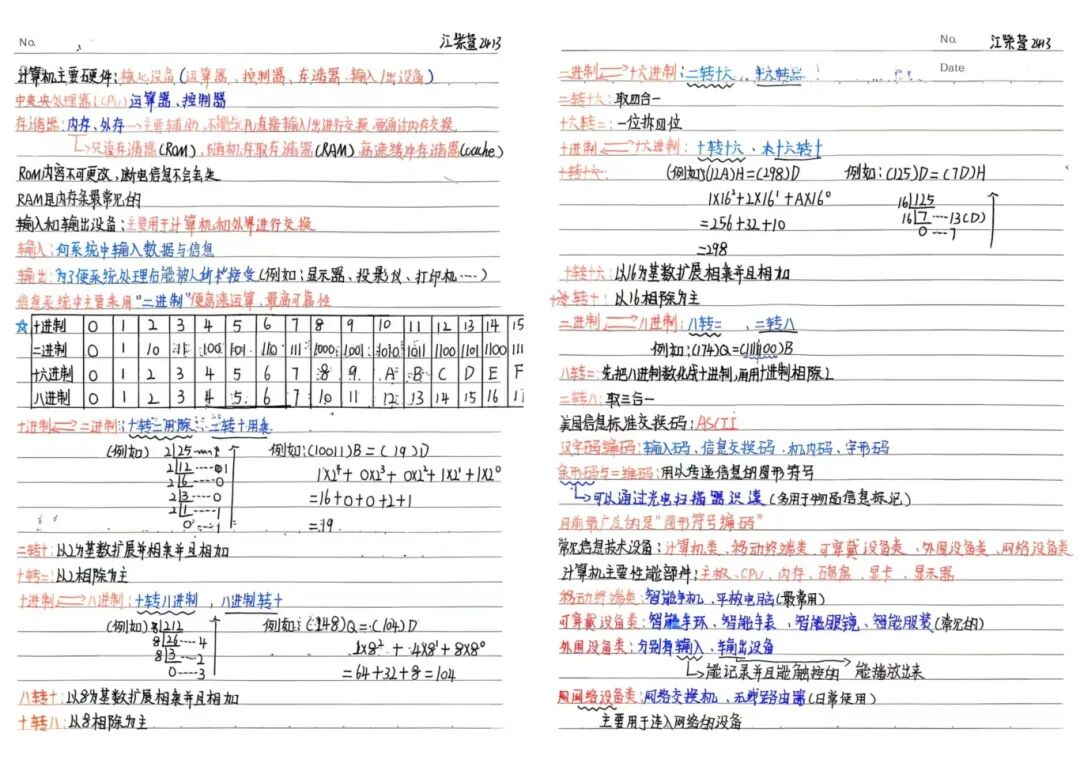 No.
江紫萱2413
计算机主要硬件:核心设备(运算器、控制器、存储器、输入/出设备)
中央处理器(CPU)运算器、控制器
存储器:内存、外存→主要辅助,不能与CPU直接输入/出进行交换,要通过内存交换
↳只读存储器(ROM),随机存取存储器(RAM)高速缓冲存储器(cache)
ROM内容不可更改,断电信息不会丢失
RAM是内存条最常见的
输入和输出设备:主要用于计算机和外界进行交换
输入:向系统中输入数据与信息
输出:为了使系统处理后能被人所接受(例如:显示器、投影仪、打印机…)
信息系统中主要采用"二进制"便高速运算,最高可靠性
☆ 十进制 0 1 2 3 4 5 6 7 8 9 10 11 12 13 14 15
二进制 0 1 10 11 100 101 110 111 1000 1001 1010 1011 1100 1101 1100 111
十六进制 0 1 2 3 4 5 6 7 8 9 A B C D E F
八进制 0 1 2 3 4 5 6 7 10 11 12 13 14 15 16 17
十进制⇌二进制:十转二用除,二转十用乘
(例如) 2 25 …1 例如:(10011)B=(19)D
2 12 …0 1×2⁴+0×2³+0×2²+1×2¹+1×2⁰
2 6 …0
2 3 …0 =16+0+0+2+1
2 1 …1
0 …1 =19
二转十:以2为基数扩展并相乘并且相加
十转二:以2相除为主
十进制⇌八进制:十转八进制,八进制转十
(例如) 8 212 例如:(148)Q=(104)D
8 26 …4 1×8²+4×8¹+8×8⁰
8 3 …2
0 …3 =64+32+8=104
八转十:以8为基数扩展相乘并且相加
十转八:以8相除为主
No.
江紫萱2413
Date
二进制⇌十六进制:二转十六、十六转二
二转十六:取四合一
十六转二:一位拆四位
十进制⇌十六进制:十转十六、十六转十
十转十六: (例如)(12A)H=(298)D 例如:(125)D=(7D)H
1×16²+2×16¹+A×16⁰ 16 125
=256+32+10 16 7 …13(D)
0 …7
=298
十转十六:以16为基数扩展相乘并且相加
十六转十:以16相除为主
二进制⇌八进制:八转二、二转八
例如:(174)Q=(1111100)B
八转二:先把八进制数化成十进制,再用十进制相除2
二转八:取三合一
美国信息标准交换码:ASCII
汉字码编码:输入码、信息交换码、机内码、字形码
条形码与二维码:用以传递信息的图形符号
↳可以通过光电扫描器识读(多用于物品信息标记)
目前最广泛的是"图形符号编码"
常见信息技术设备:计算机类、移动终端类、可穿戴设备类、外围设备类、网络设备类
计算机主要性能部件:主板、CPU、内存、硬盘、显卡、显示器
移动终端类:智能手机、平板电脑(最常用)
可穿戴设备类:智能手环、智能手表、智能眼镜、智能服装(常见的)
外围设备类:分别有输入、输出设备
↳能记录并且能触控的 能播放出来
网络设备类:网络交换机、无线路由器(日常使用)
主要用于连入网络的设备